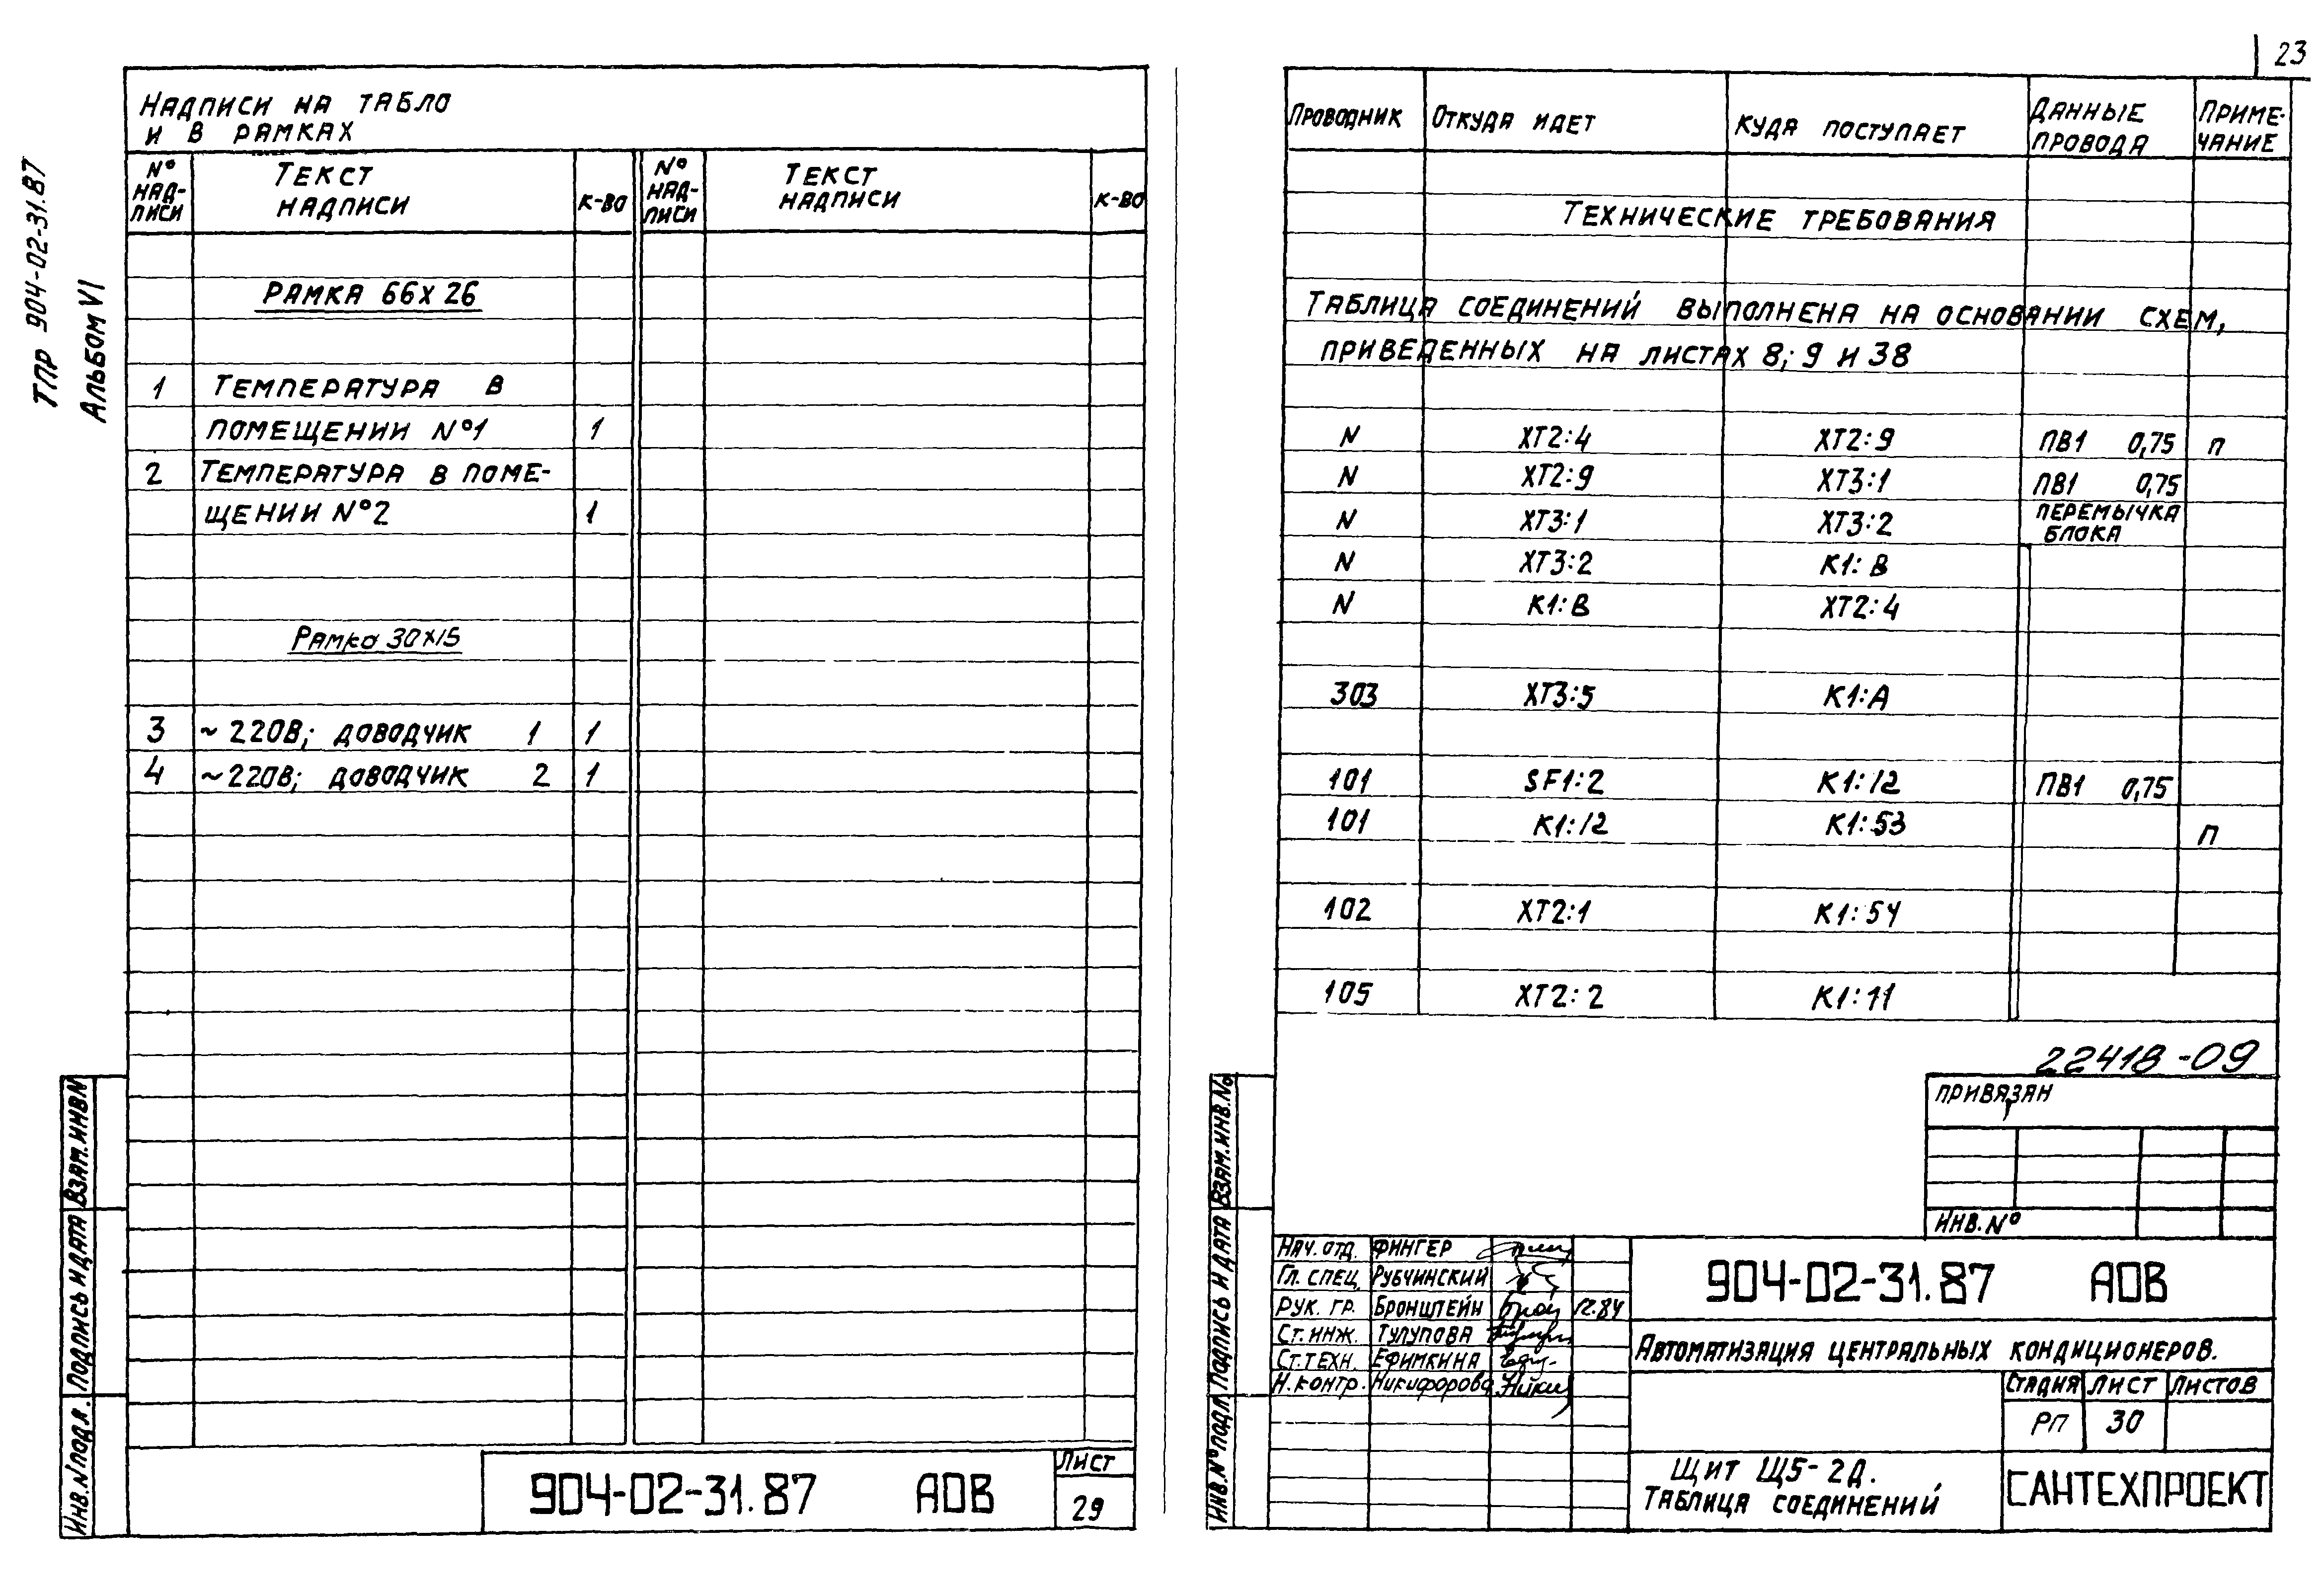 23
ТПР 904-02-31.87
Альбом VI
Надписи на табло
и в рамках
№ надписи Текст надписи к-во № надписи Текст надписи к-во
Рамка 66х26
1 Температура в
помещении №1 1
2 Температура в поме-
щении №2 1
Рамка 30х15
3 ~220В; доводчик 1 1
4 ~220В; доводчик 2 1
Взам. инв N
Подпись и дата
Инв. N подл.
904-02-31.87 АОВ
Лист
29
Проводник Откуда идет Куда поступает Данные провода Примечание
Технические требования
Таблица соединений выполнена на основании схем,
приведенных на листах 8; 9 и 38
N ХТ2:4 ХТ2:9 ПВ1 0,75 п
N ХТ2:9 ХТ3:1 ПВ1 0,75
N ХТ3:1 ХТ3:2 перемычка блока
N ХТ3:2 К1:В
N К1:В ХТ2:4
303 ХТ3:5 К1:А
101 SF1:2 К1:12 ПВ1 0,75
101 К1:12 К1:53 п
102 ХТ2:1 К1:54
105 ХТ2:2 К1:11
22418-09
Привязан
Инв. №
Взам. инв. №
Подпись и дата
Инв. № подл.
Нач. отд. Фингер
Гл. спец. Рубчинский
Рук. гр. Бронштейн 12.84
Ст. инж. Тулупова
Ст. техн. Ефимкина
Н. контр. Никифорова
904-02-31.87 АОВ
Автоматизация центральных кондиционеров.
Стадия Лист Листов
РП 30
Щит Щ5-2Д.
Таблица соединений
САНТЕХПРОЕКТ